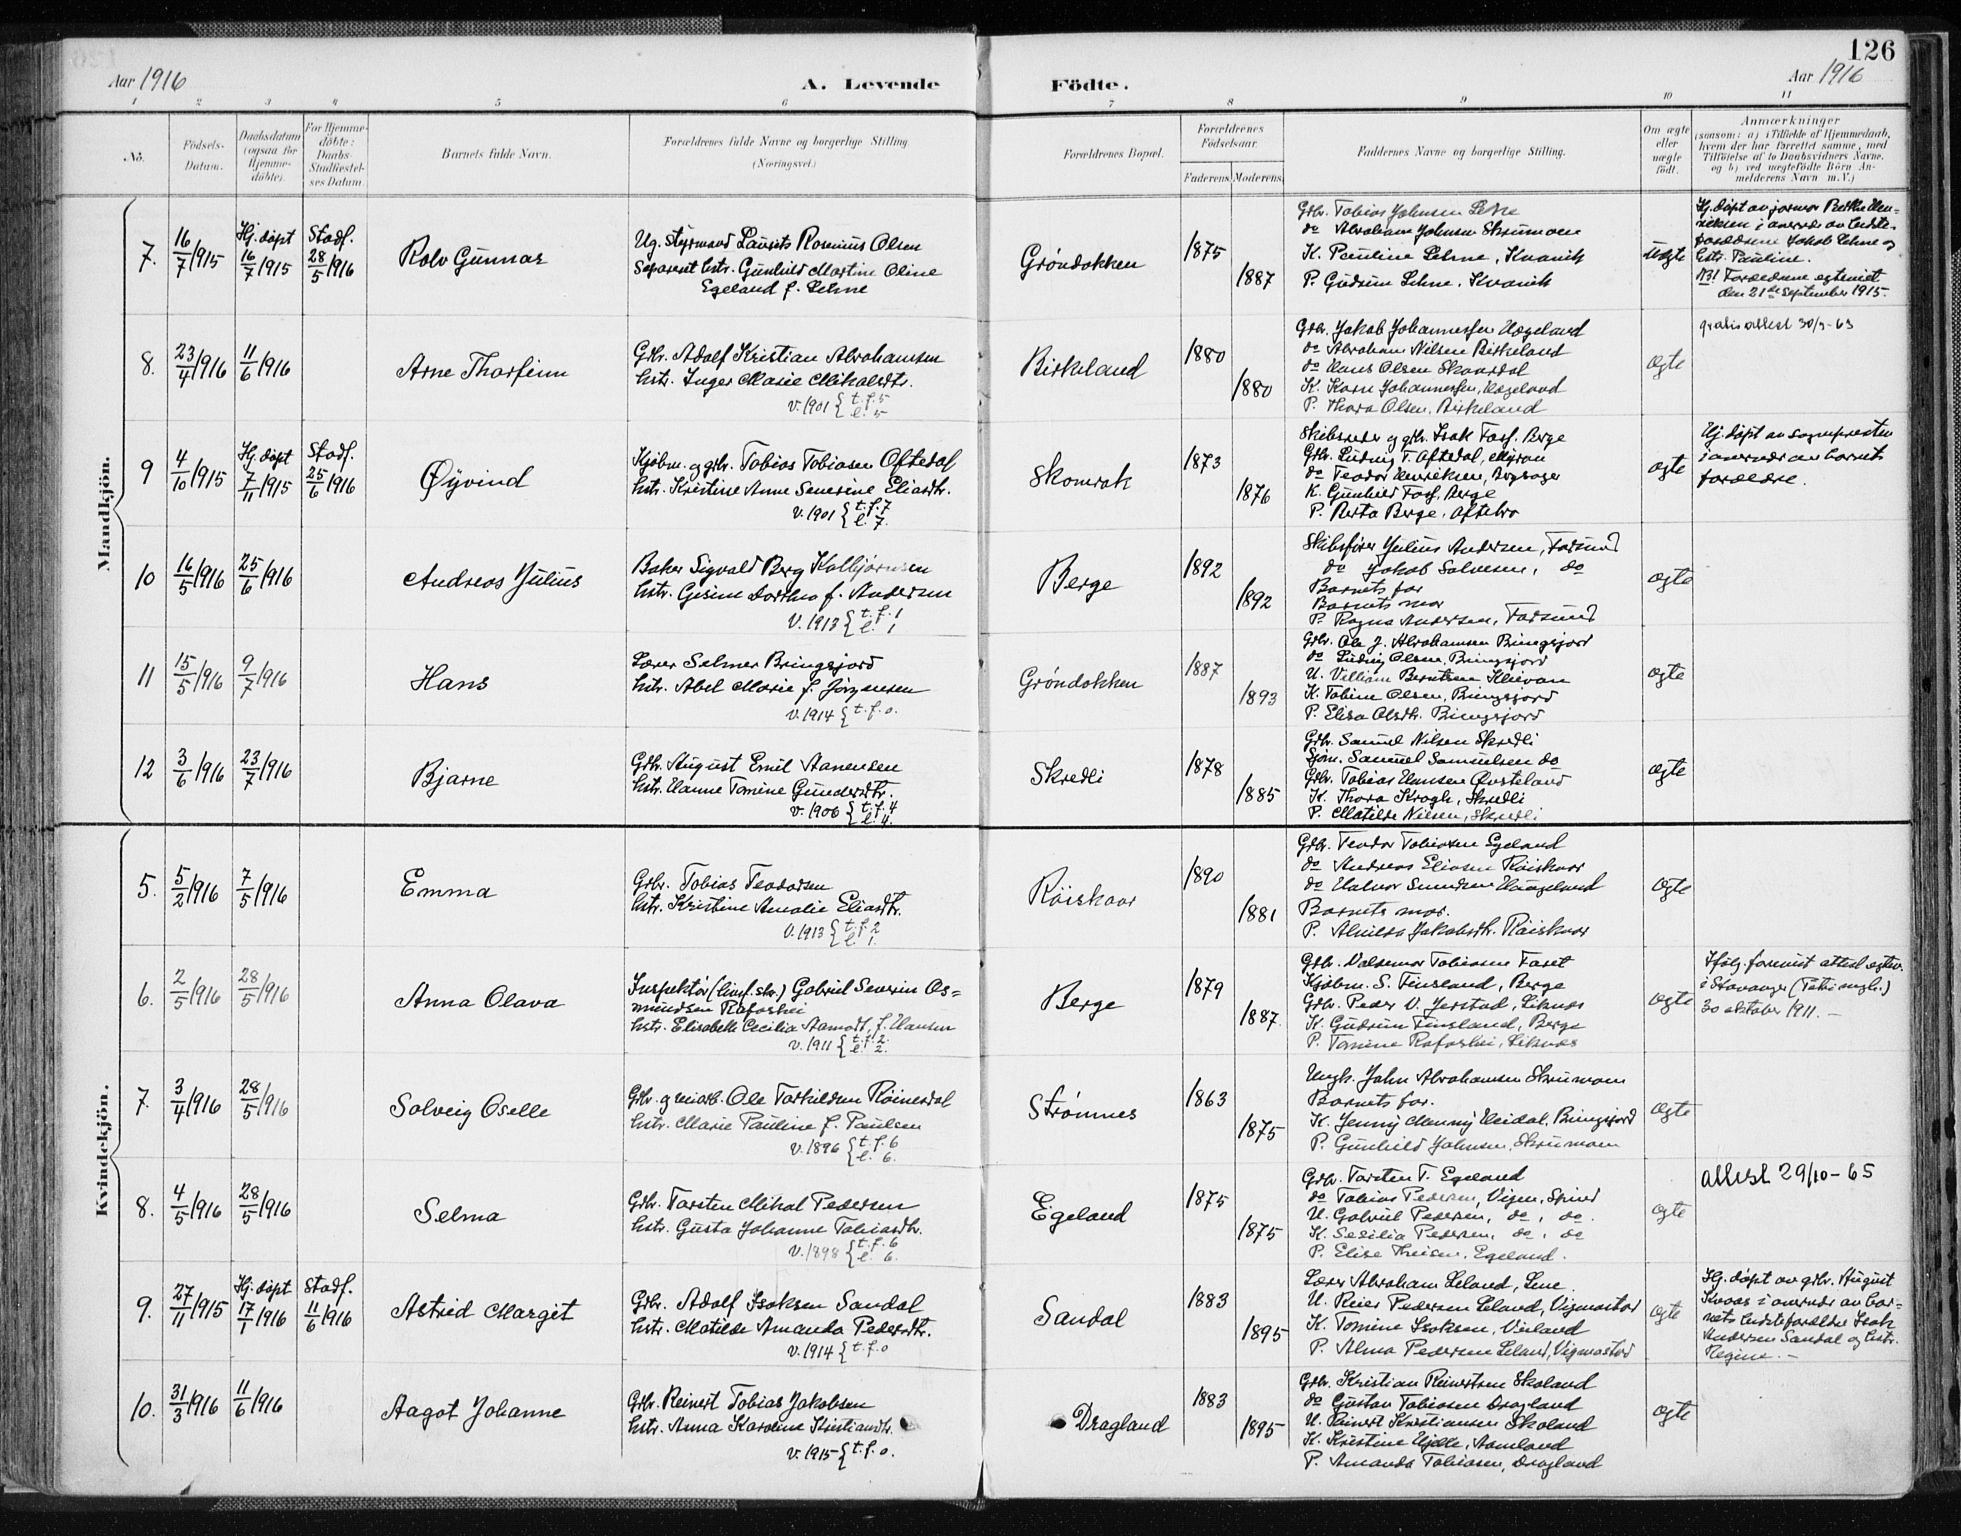 126
Aar 1916
A. Levende Födte.
Aar 1916
1 2 3 4 5 6 7 8 9 10 11
No.
Födsels-Datum.
Daabsdatum (ogsaa for Hjemme-döbte).
For Hjemme-döbte: Daabs-Stadfæstel-ses Datum.
Barnets fulde Navn.
Forældrenes fulde Navne og borgerlige Stilling (Næringsvei.)
Forældrenes Bopæl.
Forældrenes Födselsaar.
Faderens. Moderens.
Faddernes Navne og borgerlige Stilling.
Om ægte eller uægte födt.
Anmærkninger
(saasom: a) i Tilfælde af Hjemmedaab, hvem der har forrettet samme, med Tilföielse af to Daabsvidners Navne. og b) ved uægtefödte Börn An-melderens Navn m.V.)
Mandkjön.
7. 16/7 1915 Hj. døpt 16/7 1915 Stadf. 28/5 1916
Rolv Gunnar
Ug. styrmand Laurits Rosenius Olsen
Separert hstr. Gunhild Martine Oline
Egeland f. Lehne
Grøndokken
1875
1887
Grbr. Tobias Johnsen Lehne
do Abraham Johnsen Skrumoen
K. Pauline Lehne, Kvavik
P. Gudrun Lehne, Kvavik
Uægte
Hj. døpt av jormor
Jakob Lehne og
hstr. Pauline.
NB! Forældrene egteviet
den 21de september 1915.
8. 23/4 1916 11/6 1916
Arne Thorfinn
Grbr. Adolf Kristian Abrahamsen
hstr. Inger Marie Mikalsdtr.
v. 1901 { t.f. 5
l. 5
Birkeland
1880
1880
Grbr. Jakob Johannessen Hægeland
do Abraham Nilsen Birkeland
do Hans Olsen Skaardal
K. Karn Johannessen, Hægeland
P. Thora Olsen, Birkeland
ægte
gratis attest 30/9-63
9 4/10 1915 Hj. døpt 7/11 1915 Stadf. 25/6 1916
Øyvind
Kjøbm. og grbr. Tobias Tobiasen Oftedal
hstr. Kristine Anne Severine Eliasdtr.
v. 1901 { t.f. 7
l. 7.
Skomrak
1873
1876
Skibsreder og grbr. Isak Berge
Grbr. Ludvig T. Aftedal,
do Teodor Henriksen,
K. Gunhild Berge
P. Berta Berge,
ægte
Hj. døpt av sognepresten
i nærvær av barnets
forældre.
10 16/5 1916 25/6 1916
Andreas Julius
Baker Sigvald Berg Kolbjørnsen
hstr. Gesine Dorthea f. Andersen
v. 1913 { t.f. 1
l. 1
Berge
1892
1892
Skibsfører Julius Andersen, Farsund
do Jakob Salvesen, do
Barnets far
Barnets mor
P. Ragna Andersen, Farsund
ægte
11 15/5 1916 9/7 1916
Hans
Lærer Selmer Bringsjord
hstr. Abel Marie f. Jörgensen
v. 1914 { t.f. 0.
Grøndokken
1887
1893
Grbr. Ole J. Abrahamsen Bringsjord
do Ludvig Olsen, Bringsjord
U. Villiam Berntsen Klievan
K. Tobine Olsen, Bringsjord
P. Elisa Olsdtr. Bringsjord
ægte
12 3/6 1916 23/7 1916
Bjarne
Grbr. August Emil Aanensen
hstr. Hanne Tomine Gundersdtr.
v. 1906 { t.f. 4
l. 4.
Skredli
1878
1885
Grbr. Samuel Nilsen Skredli
Sjøm. Samuel Samuelsen do
Grbr. Tobias Hansen Øvsteland
K. Thora Krogh, Skredli
P. Matilde Nilsen, Skredli
ægte
Kvindekjön.
5. 5/2 1916 7/5 1916
Emma
Grbr. Tobias Teodorsen
hstr. Kristine Amalie Eliasdtr.
v. 1913 { t.f. 2
l. 1.
Röiskaar
1890
1881
Grbr. Teodor Tobiasen Egeland
do Andreas Eliasen Röiskaar
do Halvor Haugeland
Barnets mor.
P. Alvilda Jakobsdtr. Röiskaar
ægte
6. 2/5 1916 28/5 1916
Anna Olava
Inspektør Gabriel Severin Os=
mundsen Rafoshei
hstr. Elisabeth Cecilia Aamodt, f. Hansen
v. 1911 { t.f. 2.
l. 2.
Berge
1879
1887.
Grbr. Valdemar Tobiasen Faret
Kjøbm. S. Finsland, Berge
Grbr. Peder V. Jerstad, Liknes
K. Gudrun Finsland, Berge
P. Tomine Rafoshei, Liknes
ægte
Ifølg. forevist attest egtev.
i Stavanger (Petri mgh.)
30 oktober 1911. –
7. 3/4 1916 28/5 1916
Solveig Oselle
Grbr. og Ole Torkildsen Röinesdal
hstr. Marie Pauline f. Paulsen
v. 1896 { t.f. 6
l. 6.
Strømnes
1863
1875
Ungk. John Abrahamsen Skrumoen
Barnets far.
K. Jenny Heidal, Bringsjord
P. Gunhild Johnsen, Skrumoen
ægte
8. 4/5 1916 28/5 1916
Selma
Grbr. Torsten Mikal Pedersen
hstr. Gusta Johanne Tobiasdtr.
v. 1898 { t.f. 6
l. 6.
Egeland
1875
1875
Grbr. Torsten T. Egeland
do Tobias Pedersen, Vigen, Spind
U. Gabriel Pedersen, do, do.
K. Sesilia Pedersen, do, do
P. Elise Egeland.
ægte
attest 29/10-65
9. 27/11 1915 Hj. døpt 17/1 1916 Stadf. 11/6 1916
Astrid Margit
Grbr. Adolf Isaksen Sandal
hstr. Matilde Amanda Pedersdtr.
v. 1914 { t.f. 0
Sandal
1883
1895
Lærer Abraham Leland, Lene
U. Reier Pedersen Leland, Vigmostad
K. Tomine Isaksen, Veiland
P. Alma Pedersen Leland, Vigmostad
ægte
Hj. døpt av grbr. August
Kvaas i nærvær av bar=
nets bedsteforældre Isak
Andersen Sandal og hstr.
Regine. –
10. 31/3 1916 11/6 1916
Aagot Johanne
Grbr. Reinert Tobias Jakobsen
hstr. Anna Karoline Kristiansdtr.
v. 1915 { t.f. 0.
Dragland
1883
1895
Grbr. Kristian Reinertsen Skoland
do Gustav Tobiasen Dragland
U. Reinert Kristiansen Skoland
K. Kristine Hjelle, Aamland
P. Amanda Tobiasen, Dragland
ægte